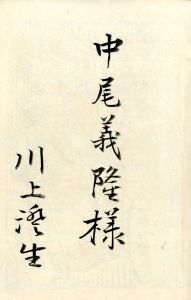 中尾義隆様
川上澄生